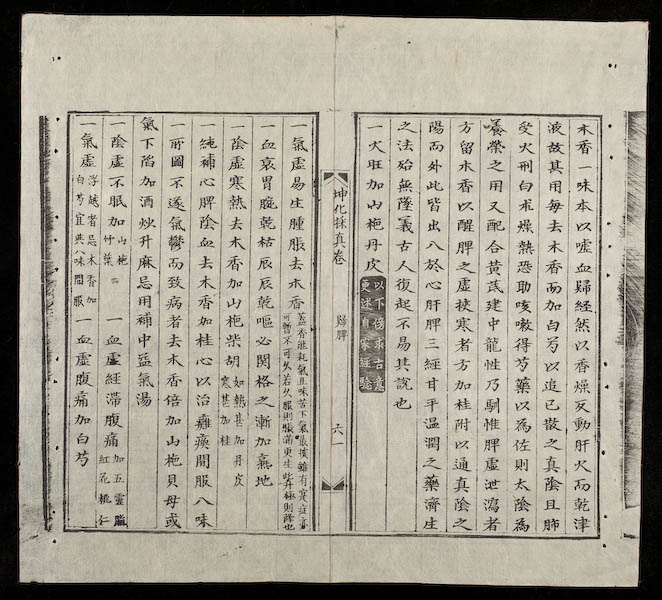 木香一味本以噓血歸經然以香燥反動肝火而乾津
液故其用每去木香而加白芍以追已散之真陰且肺
受火刑白朮燥熱恐助咳嗽得芍藥以為佐則太陰為
養榮之用又配合黃芪建中龍性乃馴惟脾虛泄瀉者
方留木香以醒脾之虛挾寒者方加桂附以通真陰之
陽而外此皆出入於心肝脾三經甘平溫潤之藥濟生
之法始無墜義古人復起不易其說也
一火旺加山梔丹皮
以下倣求古意
更述自家經驗
坤化採真卷
歸脾
六一
一氣虛易生腫脹去木香
一血衰胃脘乾枯辰辰乾嘔必關格之漸加熟地
一陰虛寒熱去木香加山梔柴胡
如熱甚加丹皮
寒甚加桂
一純補心脾陰血去木香加桂心以治癱瘓間服八味
一所圖不遂氣鬱而致病者去木香倍加山梔貝母或
氣下陷加酒炒升麻忌用補中益氣湯
一陰虛不眠加
山梔
竹葉
一血虛經滯腹痛
加五靈脂
紅花桃仁
一氣虛
浮越者忌木香加
白芍宜與八味間服
一血虛腹痛加白芍